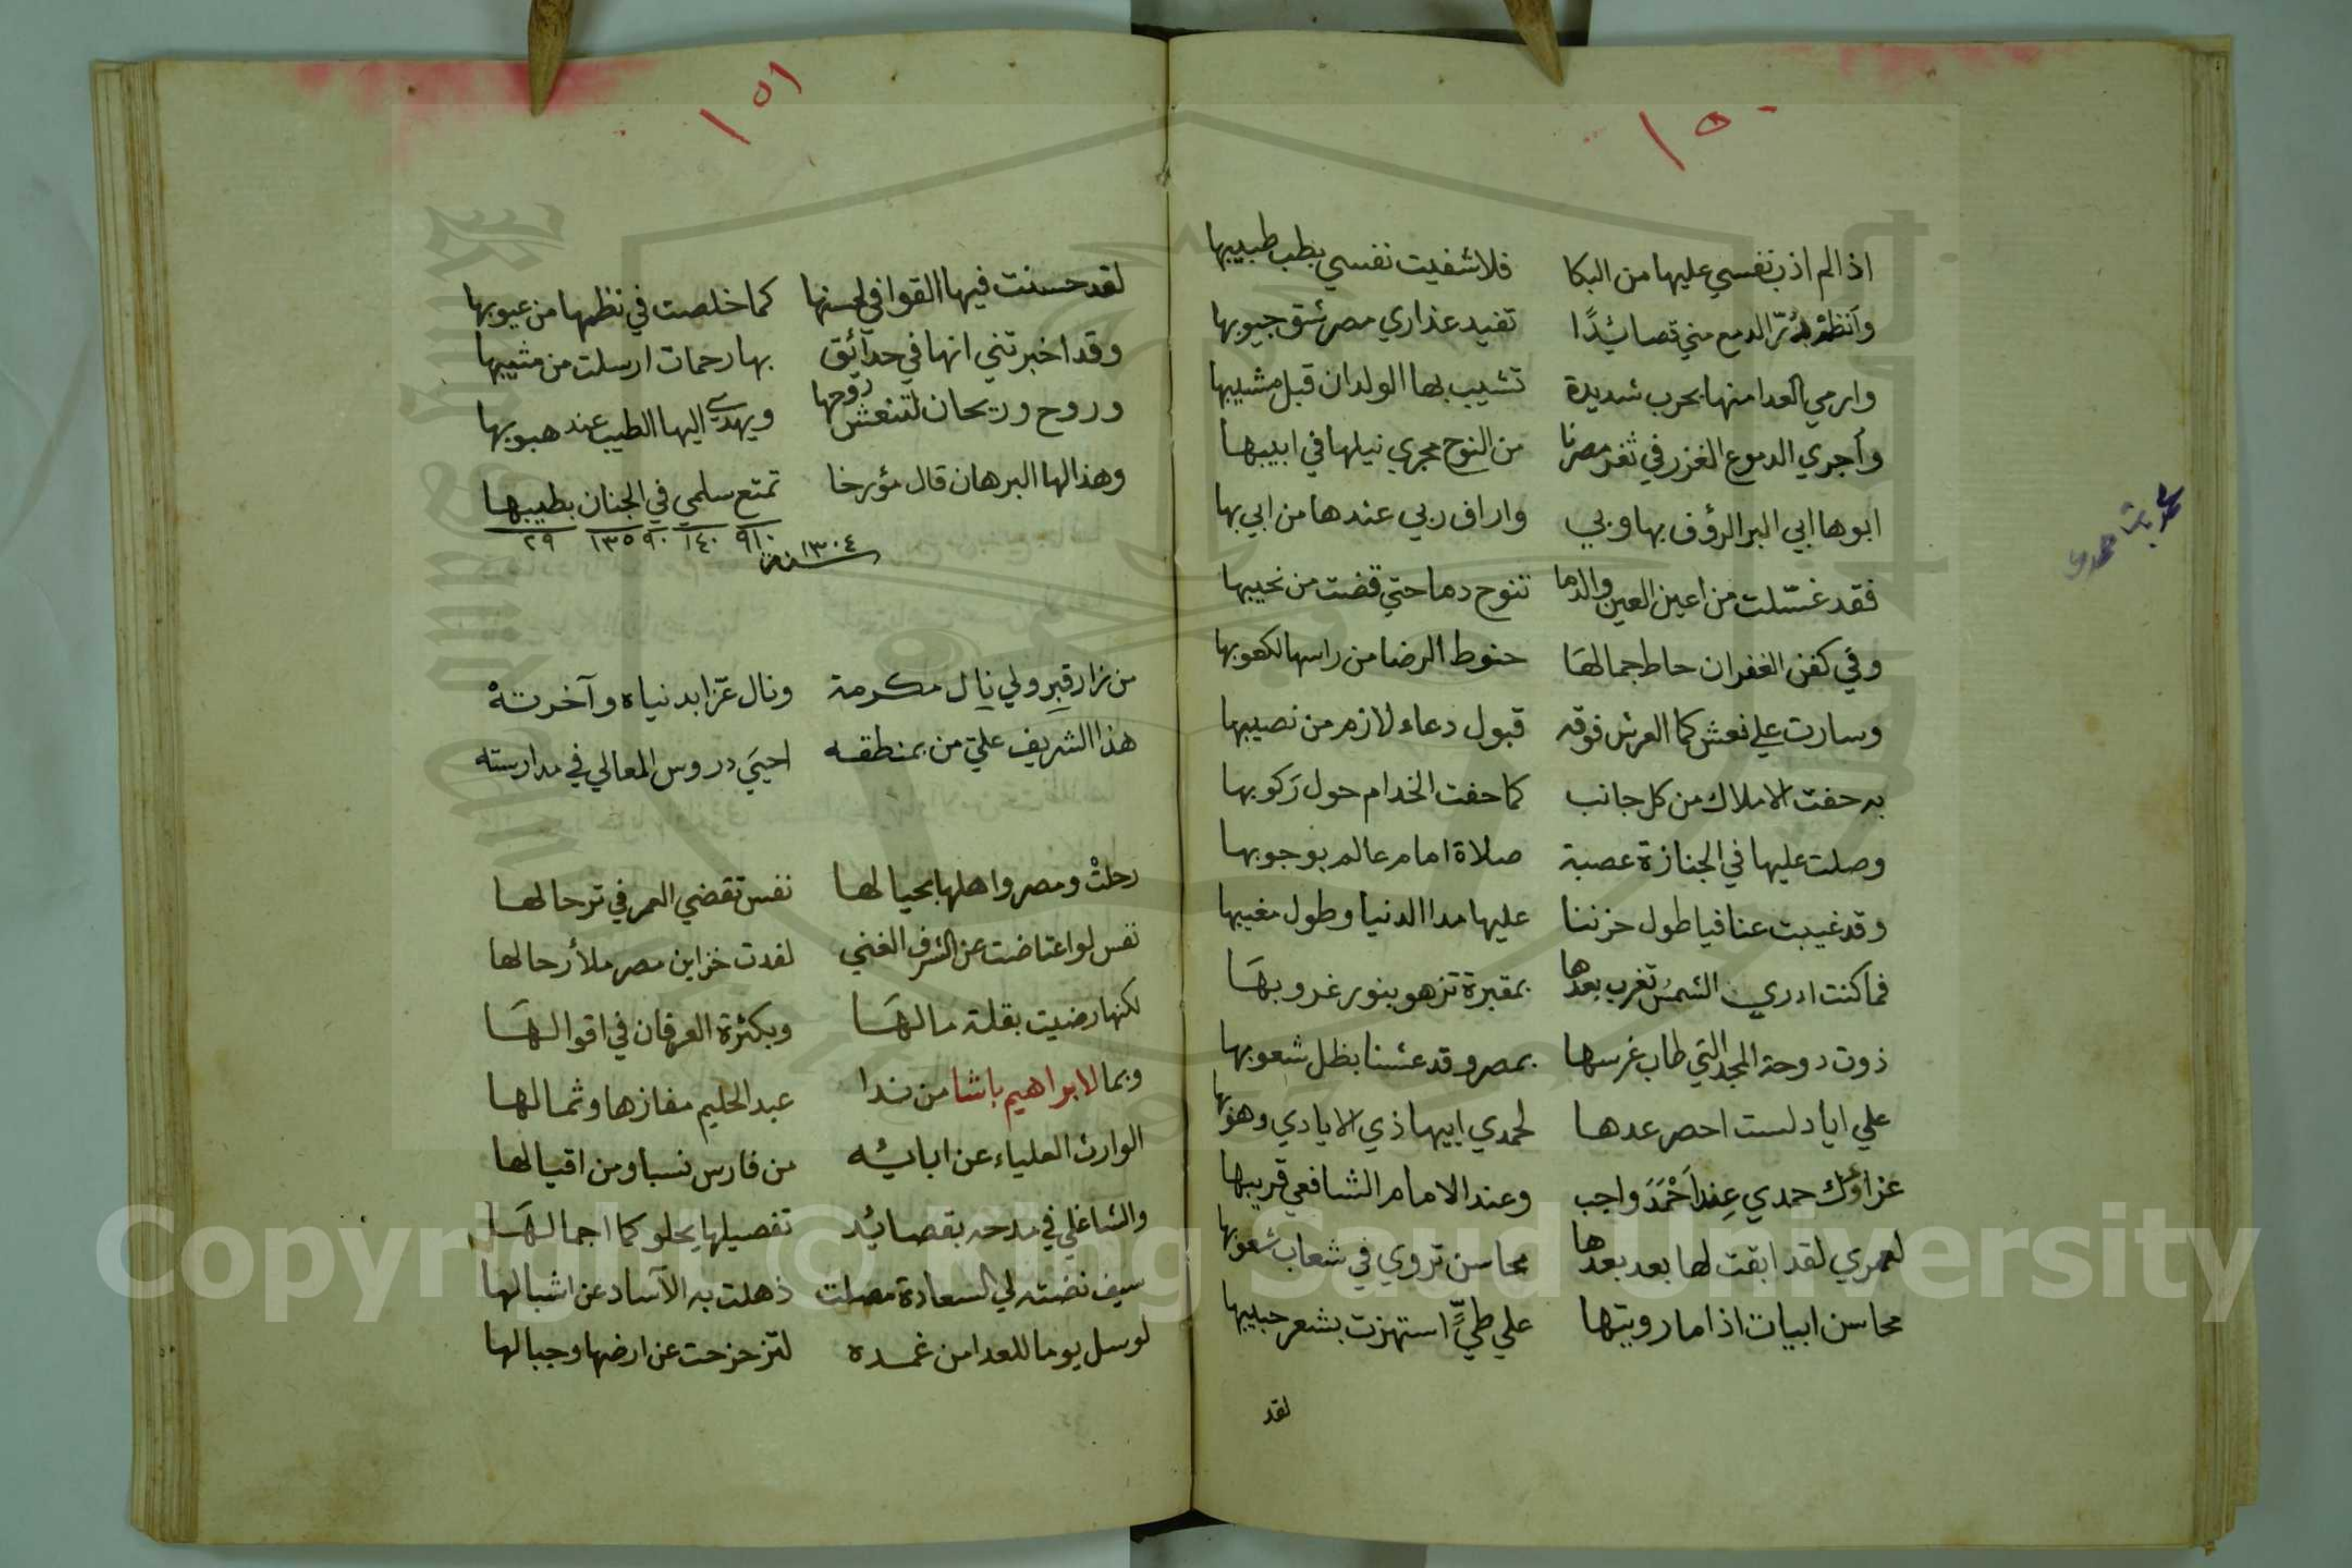 ١٥٠
اذا لم اذب نفسي عليها من البكا فلا شفيت نفسي بطب طبيبها
وأنظم در الدمع مني قصائدًا تفيد عذاري مصر شق جيوبها
وارمي العدا منها بحرب شديدة تشيب بها الولدان قبل مشيبها
وأجري الدموع الغزر في ثغر مصرنا من النوح مجري نيلها في ابيبها
ابوها ابي البر الرؤف بها وبي واراف ربي عندها من ابي بها
فقد غسّلت من اعين العين والدما تنوح دما حتي قضت من نحيبها
وفي كفن الغفران حاط جمالها حنوط الرضا من راسها لكعوبها
وسارت علي نعش كما العرش فوقه قبول دعاء لازم من نصيبها
به حفت الاملاك من كل جانب كما حفت الخدام حول رَكوبها
وصلت عليها في الجنازة عصبة صلاة امام عالم بوجوبها
وقد غيبت عنا فيا طول حزننا عليها مدا الدنيا وطول مغيبها
فما كنت ادري الشمسُ تغرب بعدها بمقبرة تزهو بنور غروبهَا
ذوت دوحة المجد التي طاب غرسها بمصر وقد عشنا بظل شعوبها
علي اياد لست احصر عدها لحمدي ابيها ذي الايادي وهو بها
عزاؤك حمدي عِند اَحْمَدَ واجب وعند الامام الشافعي قريبها
لعمري لقد ابقت لها بعد بعدها محاسن تروي في شعاب شعوبها
محاسن ابيات اذا ما رويتها علي طيٍّ استهزت بشعر حبيبها
لقد
١٥١
لقد حسنت فيها القوافي لحسنها كما خلصت في نظمها من عيوبها
وقد اخبرتني انها في حدآئق بها رحمات ارسلت من مثيبها
وروح وريحان لتنعش روحها ويهدي اليها الطيب عند هبوبها
وهذا لها البرهان قال مؤرخا تمتع سلمي في الجنان بطيبها
٩١٠ ١٤٠ ٩٠ ١٣٥ ٢٩
سنة ١٣٠٤
من زار قبر ولي نال مكرمة ونال عزّا بدنياه وآخرتهْ
هذا الشريف علي من بمنطقه احيَي دروس المعالي في مدارسته
رحلتْ ومصر واهلها بحيالها نفس تقضي العمر في ترحالها
نفس لو اعتاضت عن الشرف الغني لغدت خزاين مصر ملأ رحالها
لكنها رضيت بقلة مالهَا وبكثرة العرفان في اقوالهَا
وبما لابراهيم باشا من ندا عبد الحليم مفازها وثمالها
الوارث العلياء عن ابائه من فارس نسبا ومن اقيالها
والشاغلي في مدحه بقصائد تفصيلها يحلو كما اجمالهَا
سيف نضته لي السعادة مصلت ذهلت به الآساد عن اشبالها
لو سل يوما للعدا من غمده لتزحزحت عن ارضها وجبالها
Copyright © King Saud University